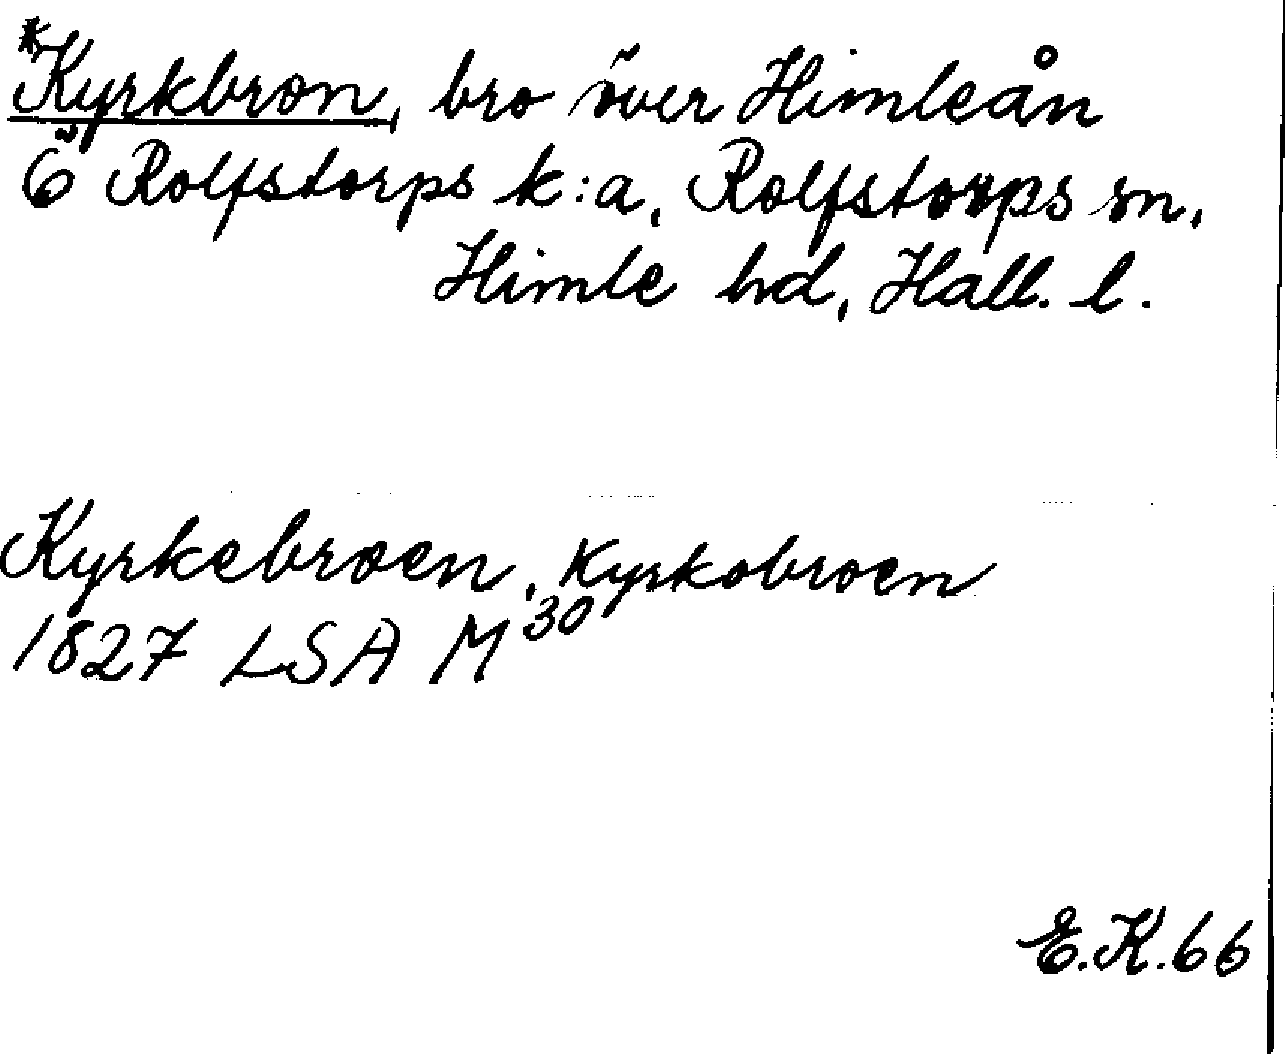 *Kyrkbron, bro över Himleån
Ö Rolfstorps k:a, Rolfstorps sn,
Himle hd, Hall. l.
Kyrkebroen, Kyrkobroen
1827 LSA M30
E.K.66